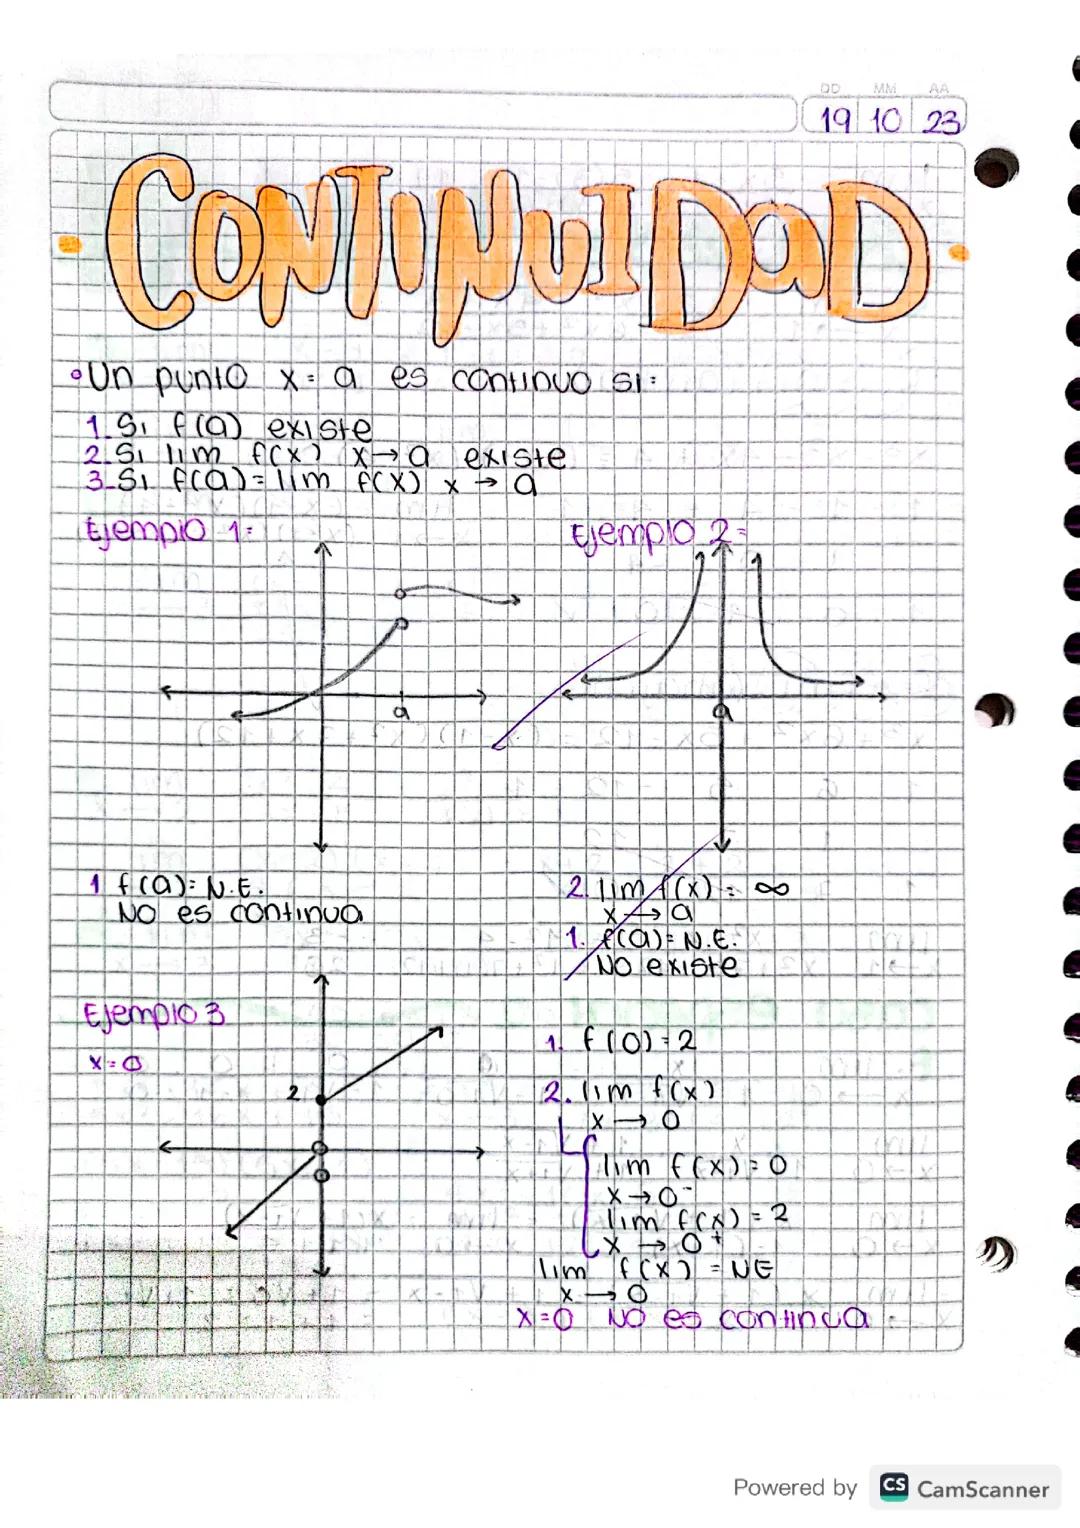 DD MM AA
19 10 23
CONTINUIDAD
Un punto x = a es continuo si:
1. Si f(a) existe
2. Si lim f(x) x → a existe
3. Si f(a) = lim f(x) x → a
Ejemplo 1:
Ejemplo 2:
a
a
1 f(a): N.E.
No es continua
2. lim f(x) = ∞
x → a
1. f(a) = N.E.
No existe
Ejemplo 3
x = 0
2
1. f(0) = 2
2. lim f(x)
x → 0
lim f(x) = 0
x → 0⁻
lim f(x) = 2
x → 0⁺
lim f(x) = NE
x → 0
x = 0 No es continua
Powered by CS CamScanner